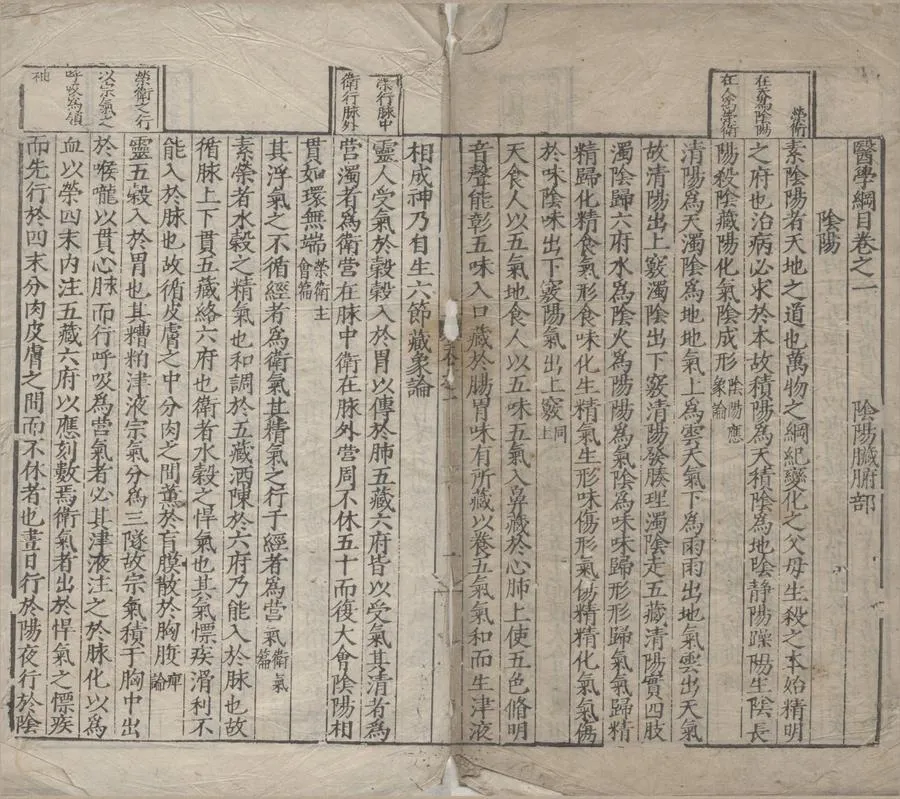 醫學綱目卷之一　陰陽臟腑部
陰陽
榮衛
在天為陰陽
在人為榮衛
素陰陽者天地之道也萬物之綱紀變化之父母生殺之本始精明
之府也治病必求於本故積陽為天積陰為地陰静陽躁陽生陰長
陽殺陰藏陽化氣陰成形陰陽應象論
清陽為天濁陰為地地氣上為雲天氣下為雨雨出地氣雲出天氣
故清陽出上竅濁陰出下竅清陽發腠理濁陰走五藏清陽實四肢
濁陰歸六府水為陰火為陽陽為氣陰為味味歸形形歸氣氣歸精
精歸化精食氣形食味化生精氣生形味傷形氣傷精精化氣氣傷
於味陰味出下竅陽氣出上竅同上
天食人以五氣地食人以五味五氣入鼻藏於心肺上使五色脩明
音聲能彰五味入口藏於腸胃味有所藏以養五氣氣和而生津液
相成神乃自生六節藏象論
榮行脉中
衛行脉外
靈人受氣於穀穀入於胃以傳於肺五藏六府皆以受氣其清者為
營濁者為衛營在脉中衛在脉外營周不休五十而復大會陰陽相
貫如環無端榮衛生會篇
其浮氣之不循經者為衛氣其精氣之行于經者為營氣衛氣篇
素榮者水穀之精氣也和調於五藏洒陳於六府乃能入於脉也故
循脉上下貫五藏絡六府也衛者水穀之悍氣也其氣慓疾滑利不
能入於脉也故循皮膚之中分肉之間熏於肓膜散於胸腹痺論
榮衛之行
以宗氣之
呼吸為領
袖
靈五穀入於胃也其糟粕津液宗氣分為三隧故宗氣積于胸中出
於喉嚨以貫心脉而行呼吸焉營氣者必其津液注之於脉化以為
血以榮四末内注五藏六府以應刻數焉衛氣者出於悍氣之慓疾
而先行於四末分肉皮膚之間而不休者也晝日行於陽夜行於陰